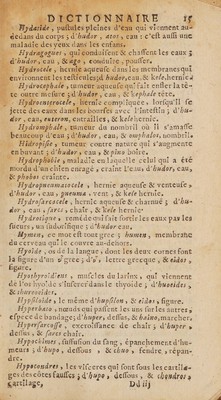 DICTIONNAIRE 15
Hydatide, pustules pleines d'eau qui viennent au
dedans du corps; d'hudor, atos, eau: c'est aussi une
maladie des yeux dans les enfans.
Hydragogues, qui conduisent & chassent les eaux;
d'hudor, eau, & ago, conduire, pousser.
Hydrocele, hernie aqueuse dans les membranes qui
environnent les testicules; d'hudor, eau, & kele, hernie.
Hydrocephale, tumeur aqueuse qui fait enfler la tê-
te outre mesure; d'hudor, eau, & kephale tête.
Hydroenterocele, hernie compliquée, lorsqu'il se
jette des eaux dans les bourses avec l'intestin; d'hu-
dor, eau, enteron, entrailles, & kele, hernie.
Hydromphale, tumeur du nombril où il s'amasse
beaucoup d'eau; d'hudor, eau, & omphalos, nombril.
Hidropisie, tumeur contre nature qui s'augmente
en buvant; d'hudor, eau, &
Hydrophobie, maladie en laquelle celui qui a été
mordu d'un chien enragé, craint l'eau; d'hudor, eau,
& phobos crainte.
Hydropneumatocele, hernie aqueuse & venteuse;
d'hudor, eau, pneuma, vent, & kele hernie.
Hydrosarcocele, hernie aqueuse & charnuë; d'hu-
dor, eau, sarx, chair, & kele hernie.
Hydrotique, remede qui fait sortir les eaux par les
sueurs, ou sudorifique; d'hudor eau.
Hymen, ce mot est tout grec; humen, membrane
du cerveau qui le couvre au-dehors.
Hyoïde, os de la langue, dont les deux cornes font
la figure d'un grec d'u, lettre grecque, & eidos,
figure.
Hypohyroïdiens, muscles du larinx, qui viennent
de l'os hyoïde s'inserer dans le thyoïde; d'huoeides,
&
Hypsiloïde, le même d'hupsilon, & eidos, figure.
Hyperbato, nœuds qui passent les uns sur les autres,
espece de bandage; d'huper, dessus, & baino, marcher.
Hypersarcose, excroissance de chair; d'huper
dessus, & sarx chair.
Hypochimos, suffusion du sang, épanchement d'hu-
meurs; d'hupo, dessous, & chuo, fendre, répan-
dre.
Hypocondres, les visceres qui sont sous les cartila-
ges des côtes fausses; d'hupo, dessous, & chondros,
cartilage,
Dd iij